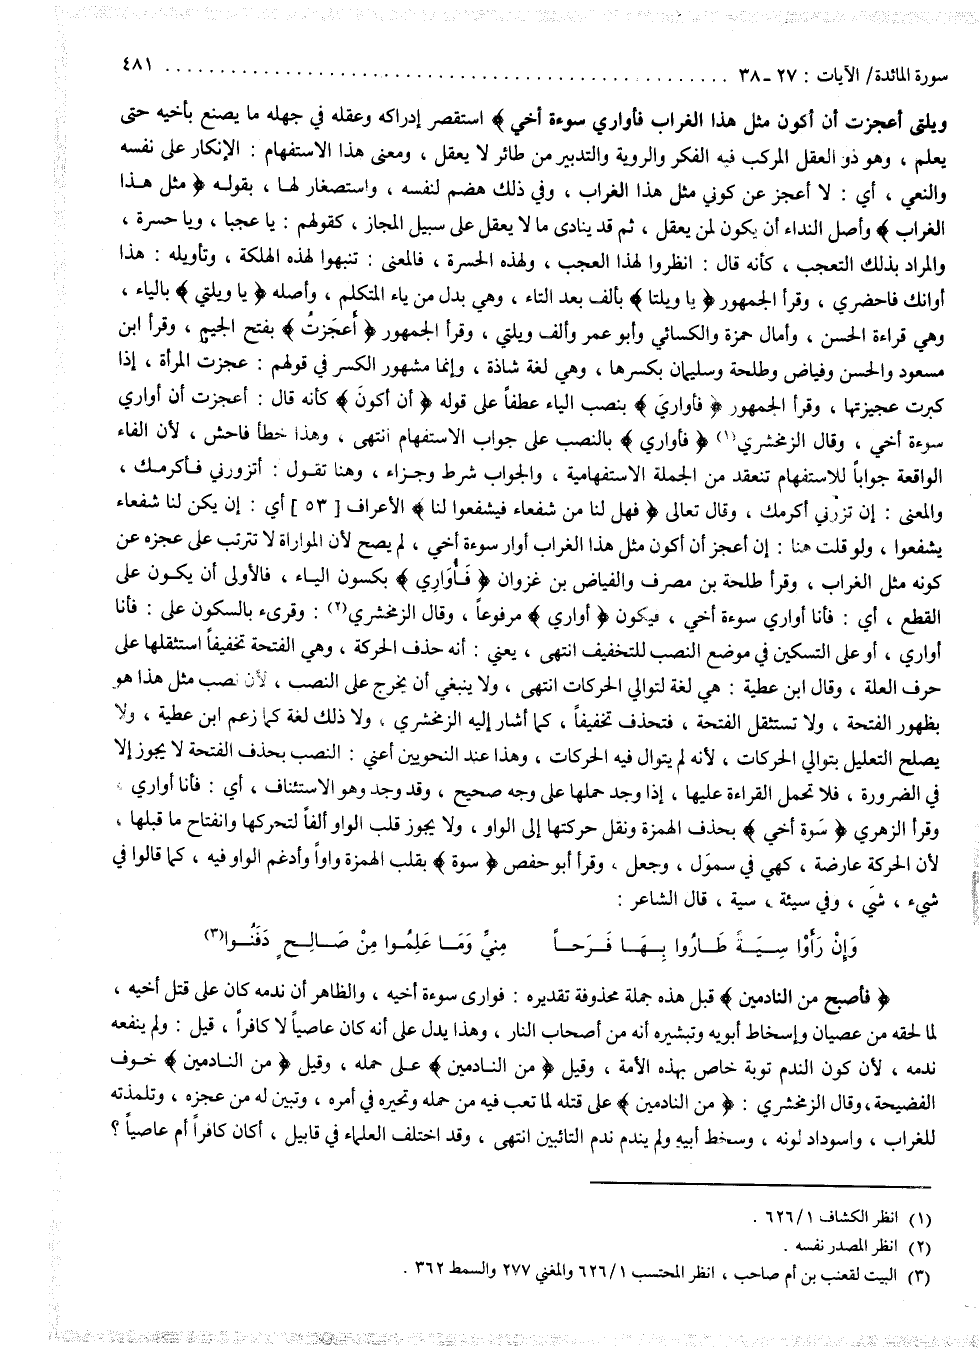 سورة المائدة/ الآيات : ٢٧ ـ ٣٨ ................................................ ٤٨١
ويلتى أعجزت أن أكون مثل هذا الغراب فأواري سوءة أخي ﴾ استقصر إدراكه وعقله في جهله ما يصنع بأخيه حتى
يعلم ، وهو ذو العقل المركب فيه الفكر والروية والتدبير من طائر لا يعقل ، ومعنى هذا الاستفهام : الإنكار على نفسه
والنعي ، أي : لا أعجز عن كوني مثل هذا الغراب ، وفي ذلك هضم لنفسه ، واستصغار لها ، بقوله ﴿ مثل هذا
الغراب ﴾ وأصل النداء أن يكون لمن يعقل ، ثم قد ينادى ما لا يعقل على سبيل المجاز ، كقولهم : يا عجبا ، ويا حسرة ،
والمراد بذلك التعجب ، كأنه قال : انظروا لهذا العجب ، ولهذه الحسرة ، فالمعنى : تنبهوا لهذه الهلكة ، وتأويله : هذا
أوانك فاحضري ، وقرأ الجمهور ﴿ يا ويلتا ﴾ بألف بعد التاء ، وهي بدل من ياء المتكلم ، وأصله ﴿ يا ويلتي ﴾ بالياء ،
وهي قراءة الحسن ، وأمال حمزة والكسائي وأبو عمر وألف ويلتي ، وقرأ الجمهور ﴿ أَعجَزتُ ﴾ بفتح الجيم ، وقرأ ابن
مسعود والحسن وفياض وطلحة وسليمان بكسرها ، وهي لغة شاذة ، وإنما مشهور الكسر في قولهم : عجزت المرأة ، إذا
كبرت عجيزتها ، وقرأ الجمهور ﴿ فأواريَ ﴾ بنصب الياء عطفاً على قوله ﴿ أن أكونَ ﴾ كأنه قال : أعجزت أن أواري
سوءة أخي ، وقال الزمخشري(١) ﴿ فأواري ﴾ بالنصب على جواب الاستفهام انتهى ، وهذا خطأ فاحش ، لأن الفاء
الواقعة جواباً للاستفهام تنعقد من الجملة الاستفهامية ، والجواب شرط وجزاء ، وهنا تقول : أتزورني فأكرمك ،
والمعنى : إن تزرني أكرمك ، وقال تعالى ﴿ فهل لنا من شفعاء فيشفعوا لنا ﴾ الأعراف [ ٥٣ ] أي : إن يكن لنا شفعاء
يشفعوا ، ولو قلت هنا : إن أعجز أن أكون مثل هذا الغراب أوار سوءة أخي ، لم يصح لأن المواراة لا تترتب على عجزه عن
كونه مثل الغراب ، وقرأ طلحة بن مصرف والفياض بن غزوان ﴿ فَأُوَارِي ﴾ بكسون الياء ، فالأولى أن يكون على
القطع ، أي : فأنا أواري سوءة أخي ، فيكون ﴿ أواري ﴾ مرفوعاً ، وقال الزمخشري(٢) : وقرىء بالسكون على : فأنا
أواري ، أو على التسكين في موضع النصب للتخفيف انتهى ، يعني : أنه حذف الحركة ، وهي الفتحة تخفيفاً استثقلها على
حرف العلة ، وقال ابن عطية : هي لغة لتوالي الحركات انتهى ، ولا ينبغي أن يخرج على النصب ، لأن نصب مثل هذا هو
بظهور الفتحة ، ولا تستثقل الفتحة ، فتحذف تخفيفاً ، كما أشار إليه الزمخشري ، ولا ذلك لغة كما زعم ابن عطية ، ولا
يصلح التعليل بتوالي الحركات ، لأنه لم يتوال فيه الحركات ، وهذا عند النحويين أعني : النصب بحذف الفتحة لا يجوز إلا
في الضرورة ، فلا تحمل القراءة عليها ، إذا وجد حملها على وجه صحيح ، وقد وجد وهو الاستئناف ، أي : فأنا أواري ،
وقرأ الزهري ﴿ سَوة أخي ﴾ بحذف الهمزة ونقل حركتها إلى الواو ، ولا يجوز قلب الواو ألفاً لتحركها وانفتاح ما قبلها ،
لأن الحركة عارضة ، كهي في سموَل ، وجعل ، وقرأ أبو حفص ﴿ سوة ﴾ بقلب الهمزة واواً وأدغم الواو فيه ، كما قالوا في
شيء ، شَي ، وفي سيئة ، سية ، قال الشاعر :
وَإِنْ رَأَوْا سِيَةً طَارُوا بِهَا فَرَحاً مِنيِّ وَمَا عَلِمُوا مِنْ صَالِحٍ دَفَنُوا(٣)
﴿ فأصبح من النادمين ﴾ قبل هذه جملة محذوفة تقديره : فوارى سوءة أخيه ، والظاهر أن ندمه كان على قتل أخيه ،
لما لحقه من عصيان وإسخاط أبويه وتبشيره أنه من أصحاب النار ، وهذا يدل على أنه كان عاصياً لا كافراً ، قيل : ولم ينفعه
ندمه ، لأن كون الندم توبة خاص بهذه الأمة ، وقيل ﴿ من النادمين ﴾ على حمله ، وقيل ﴿ من النادمين ﴾ خوف
الفضيحة ، وقال الزمخشري : ﴿ من النادمين ﴾ على قتله لما تعب فيه من حمله وتحيره في أمره ، وتبين له من عجزه ، وتلمذته
للغراب ، واسوداد لونه ، وسخط أبيه ولم يندم ندم التائبين انتهى ، وقد اختلف العلماء في قابيل ، أكان كافراً أم عاصياً ؟
(١) انظر الكشاف ٦٢٦/١ .
(٢) انظر المصدر نفسه .
(٣) البيت لقعنب بن أم صاحب ، انظر المحتسب ٦٢٦/١ والمغني ٢٧٧ والسمط ٣٦٢ .